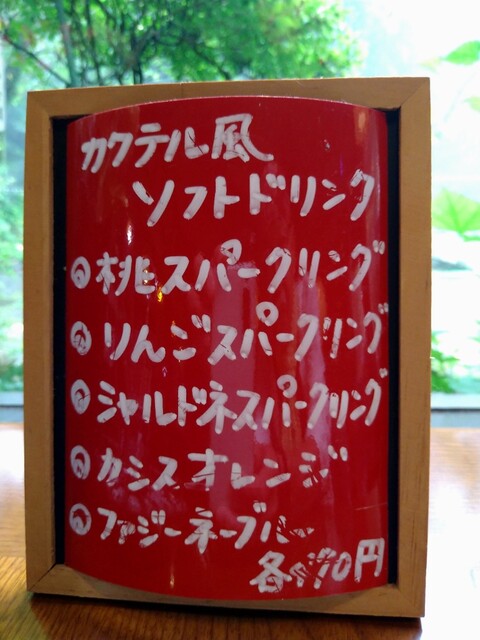 カクテル風
ソフトドリンク
桃スパークリング
りんごスパークリング
シャルドネスパークリング
カシスオレンジ
ファジーネーブル
各
円